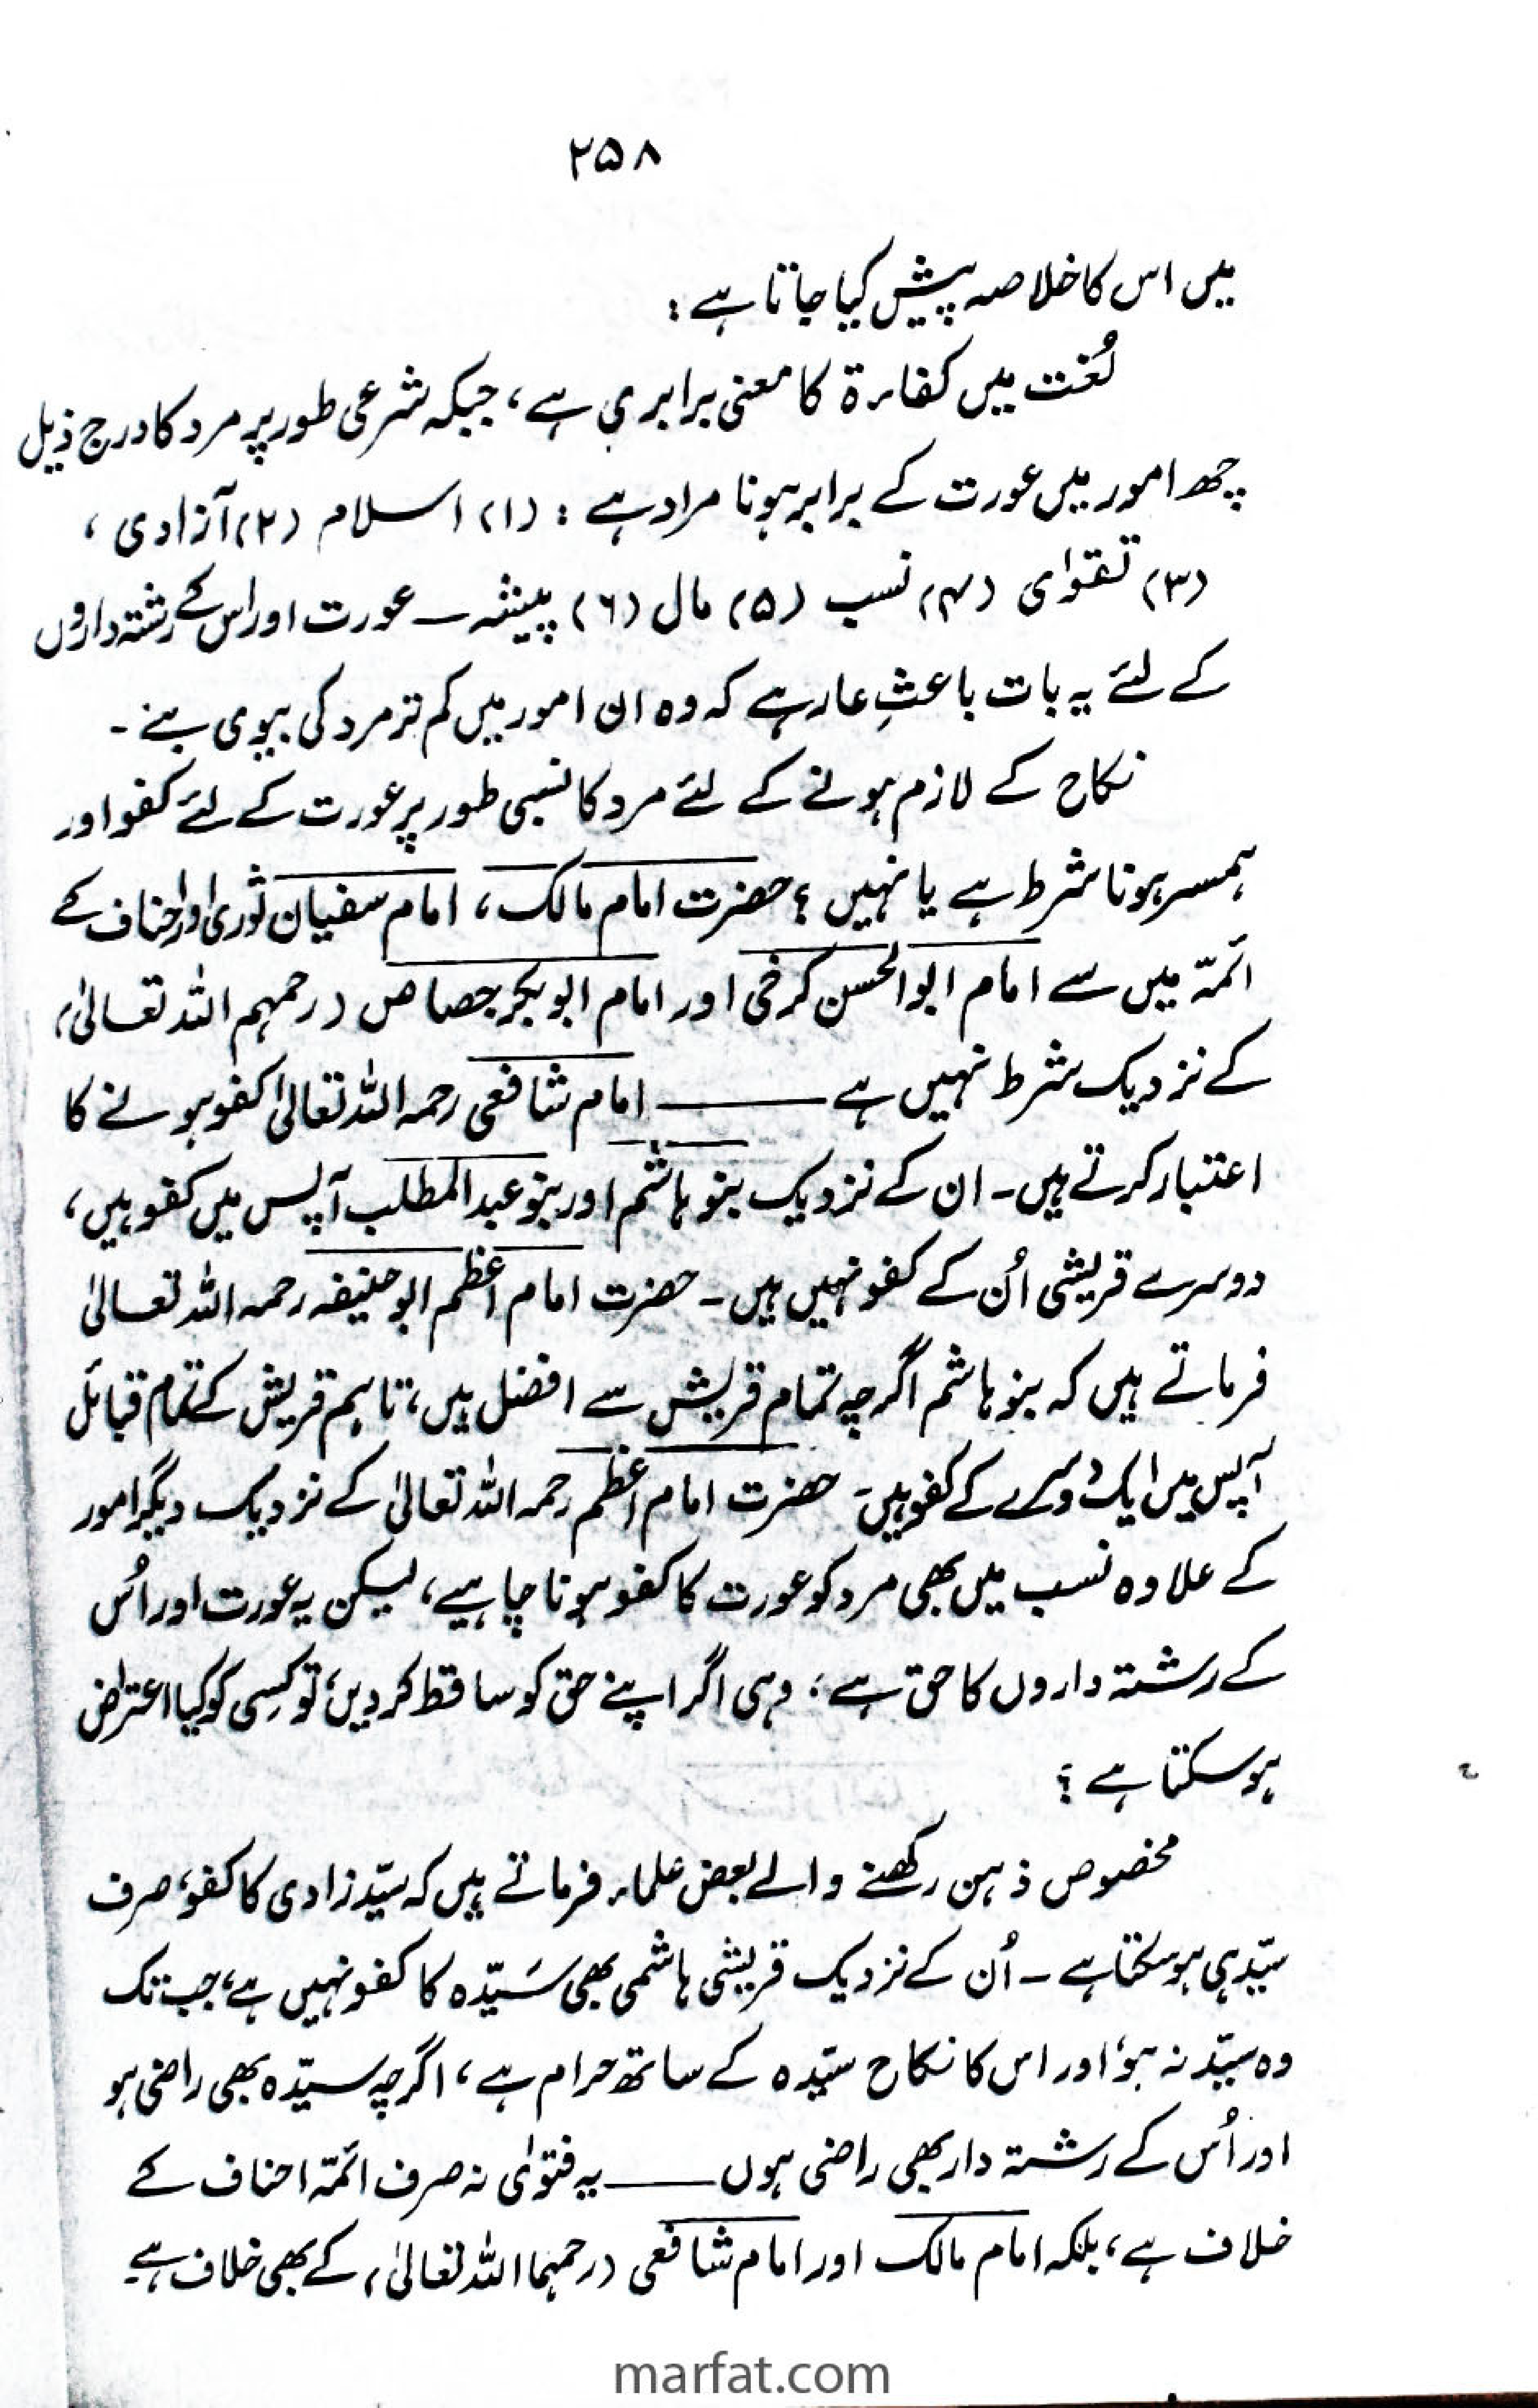 ۲۵۸
میں اس کا خلاصہ پیش کیا جاتا ہے :
لُغت میں کفاءۃ کا معنی برابری ہے، جبکہ شرعی طور پر مرد کا درج ذیل
چھ امور میں عورت کے برابر ہونا مراد ہے : (۱) اسلام (۲) آزادی ،
(۳) تقوٰی (۴) نسب (۵) مال (۶) پیشہ ــ عورت اور اس کے رشتہ داروں
کے لئے یہ بات باعثِ عار ہے کہ وہ ان امور میں کم تر مرد کی بیوی بنے ۔
نکاح کے لازم ہونے کے لئے مرد کا نسبی طور پر عورت کے لئے کفو اور
ہمسر ہونا شرط ہے یا نہیں ؟ حضرت امام مالک، امام سفیان ثوری اور احناف کے
ائمّہ میں سے امام ابوالحسن کرخی اور امام ابوبکر جصاص (رحمہم اللہ تعالیٰ)
کے نزدیک شرط نہیں ہے ـــــــ امام شافعی رحمہ اللہ تعالیٰ کفو ہونے کا
اعتبار کرتے ہیں ۔ ان کے نزدیک بنو ہاشم اور بنو عبدالمطلب آپس میں کفو ہیں،
دوسرے قریشی اُن کے کفو نہیں ہیں ۔ حضرت امام اعظم ابوحنیفہ رحمہ اللہ تعالیٰ
فرماتے ہیں کہ بنو ہاشم اگرچہ تمام قریش سے افضل ہیں، تاہم قریش کے تمام قبائل
آپس میں ایک دوسرے کے کفو ہیں ۔ حضرت امام اعظم رحمہ اللہ تعالیٰ کے نزدیک دیگر امور
کے علاوہ نسب میں بھی مرد کو عورت کا کفو ہونا چاہیے، لیکن یہ عورت اور اُس
کے رشتہ داروں کا حق ہے، وہی اگر اپنے حق کو ساقط کردیں، تو کسی کو کیا اعتراض
ہوسکتا ہے ؟
مخصوص ذہن رکھنے والے بعض علماء فرماتے ہیں کہ سیّدزادی کا کفو، صرف
سیّد ہی ہوسکتا ہے ۔ اُن کے نزدیک قریشی ہاشمی بھی سَیّدہ کا کفو نہیں ہے، جب تک
وہ سیّد نہ ہو، اور اس کا نکاح سیّدہ کے ساتھ حرام ہے، اگرچہ سیّدہ بھی راضی ہو
اور اُس کے رشتہ دار بھی راضی ہوں ـــــ یہ فتوٰی نہ صرف ائمّہ احناف کے
خلاف ہے، بلکہ امام مالک اور امام شافعی (رحمہما اللہ تعالیٰ) کے بھی خلاف ہے۔
marfat.com